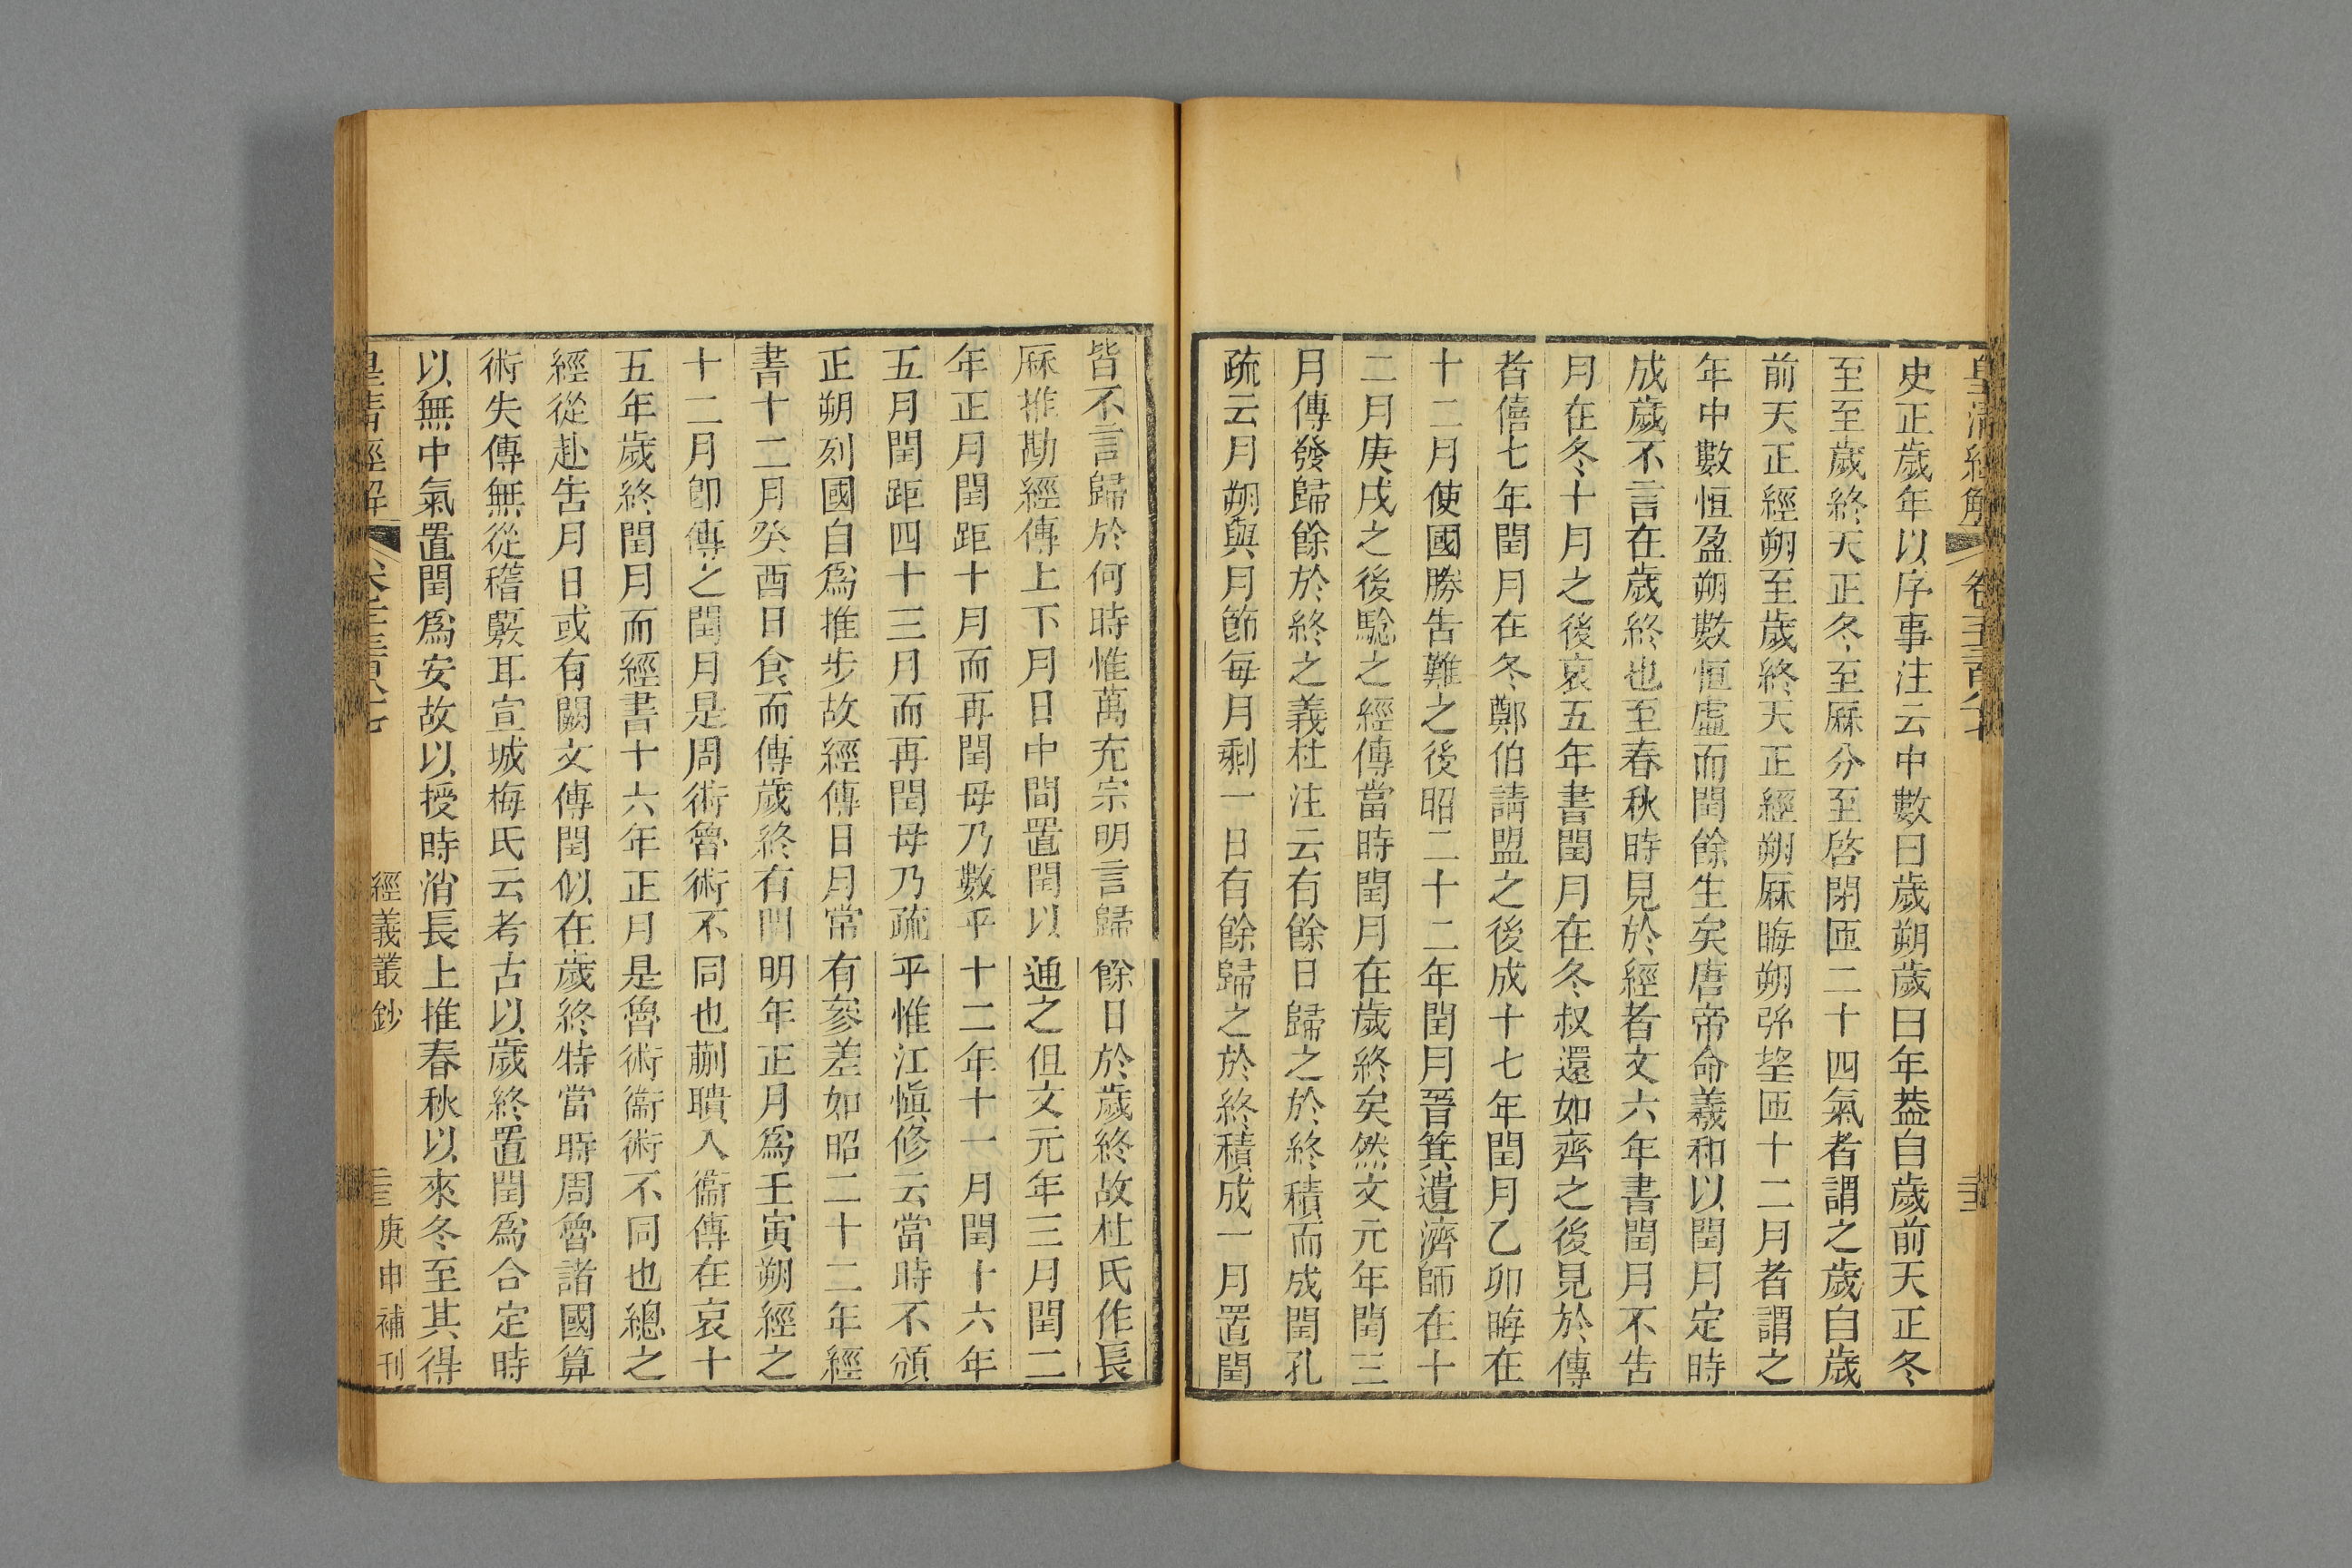 皇清經解
史正歲年以序事注云中數曰歲朔歲曰年葢自歲前天正冬
至至歲終天正冬至厤分至啓閉匝二十四氣者謂之歲自歲
前天正經朔至歲終天正經朔厤晦朔弥朢匝十二月者謂之
年中數恒盈朔數恒虛而閏餘生矣唐帝命羲和以閏月定時
成歲不言在歲終也至春秋時見於經者文六年書閏月不吿
月在冬十月之後哀五年書閏月在冬叔還如齊之後見於傳
者僖七年閏月在冬鄭伯請盟之後成十七年閏月乙卯晦在
十二月使國勝吿難之後昭二十二年閏月晉箕遺濟師在十
二月庚戌之後騐之經傳當時閏月在歲終矣然文元年閏三
月傳發歸餘於終之義杜注云有餘日歸之於終積而成閏孔
疏云月朔與月節每月剩一日有餘歸之於終積成一月置閏
皆不言歸於何時惟萬充宗明言歸餘日於歲終故杜氏作長
厤推勘經傳上下月日中間置閏以通之但文元年三月閏二
年正月閏距十月而再閏毋乃數乎十二年十一月閏十六年
五月閏距四十三月而再閏毋乃疏乎惟江愼修云當時不頒
正朔列國自爲推步故經傳日月常有參差如昭二十二年經
書十二月癸酉日食而傳歲終有閏明年正月爲壬寅朔經之
十二月卽傳之閏月是周術魯術不同也蒯聵入衞傳在哀十
五年歲終閏月而經書十六年正月是魯術衞術不同也總之
經從赴吿月日或有闕文傳閏似在歲終特當時周魯諸國算
術失傳無從稽覈耳宣城梅氏云考古以歲終置閏爲合定時
以無中氣置閏爲安故以授時消長上推春秋以來冬至其得
皇清經解
經義叢鈔
庚申補刊